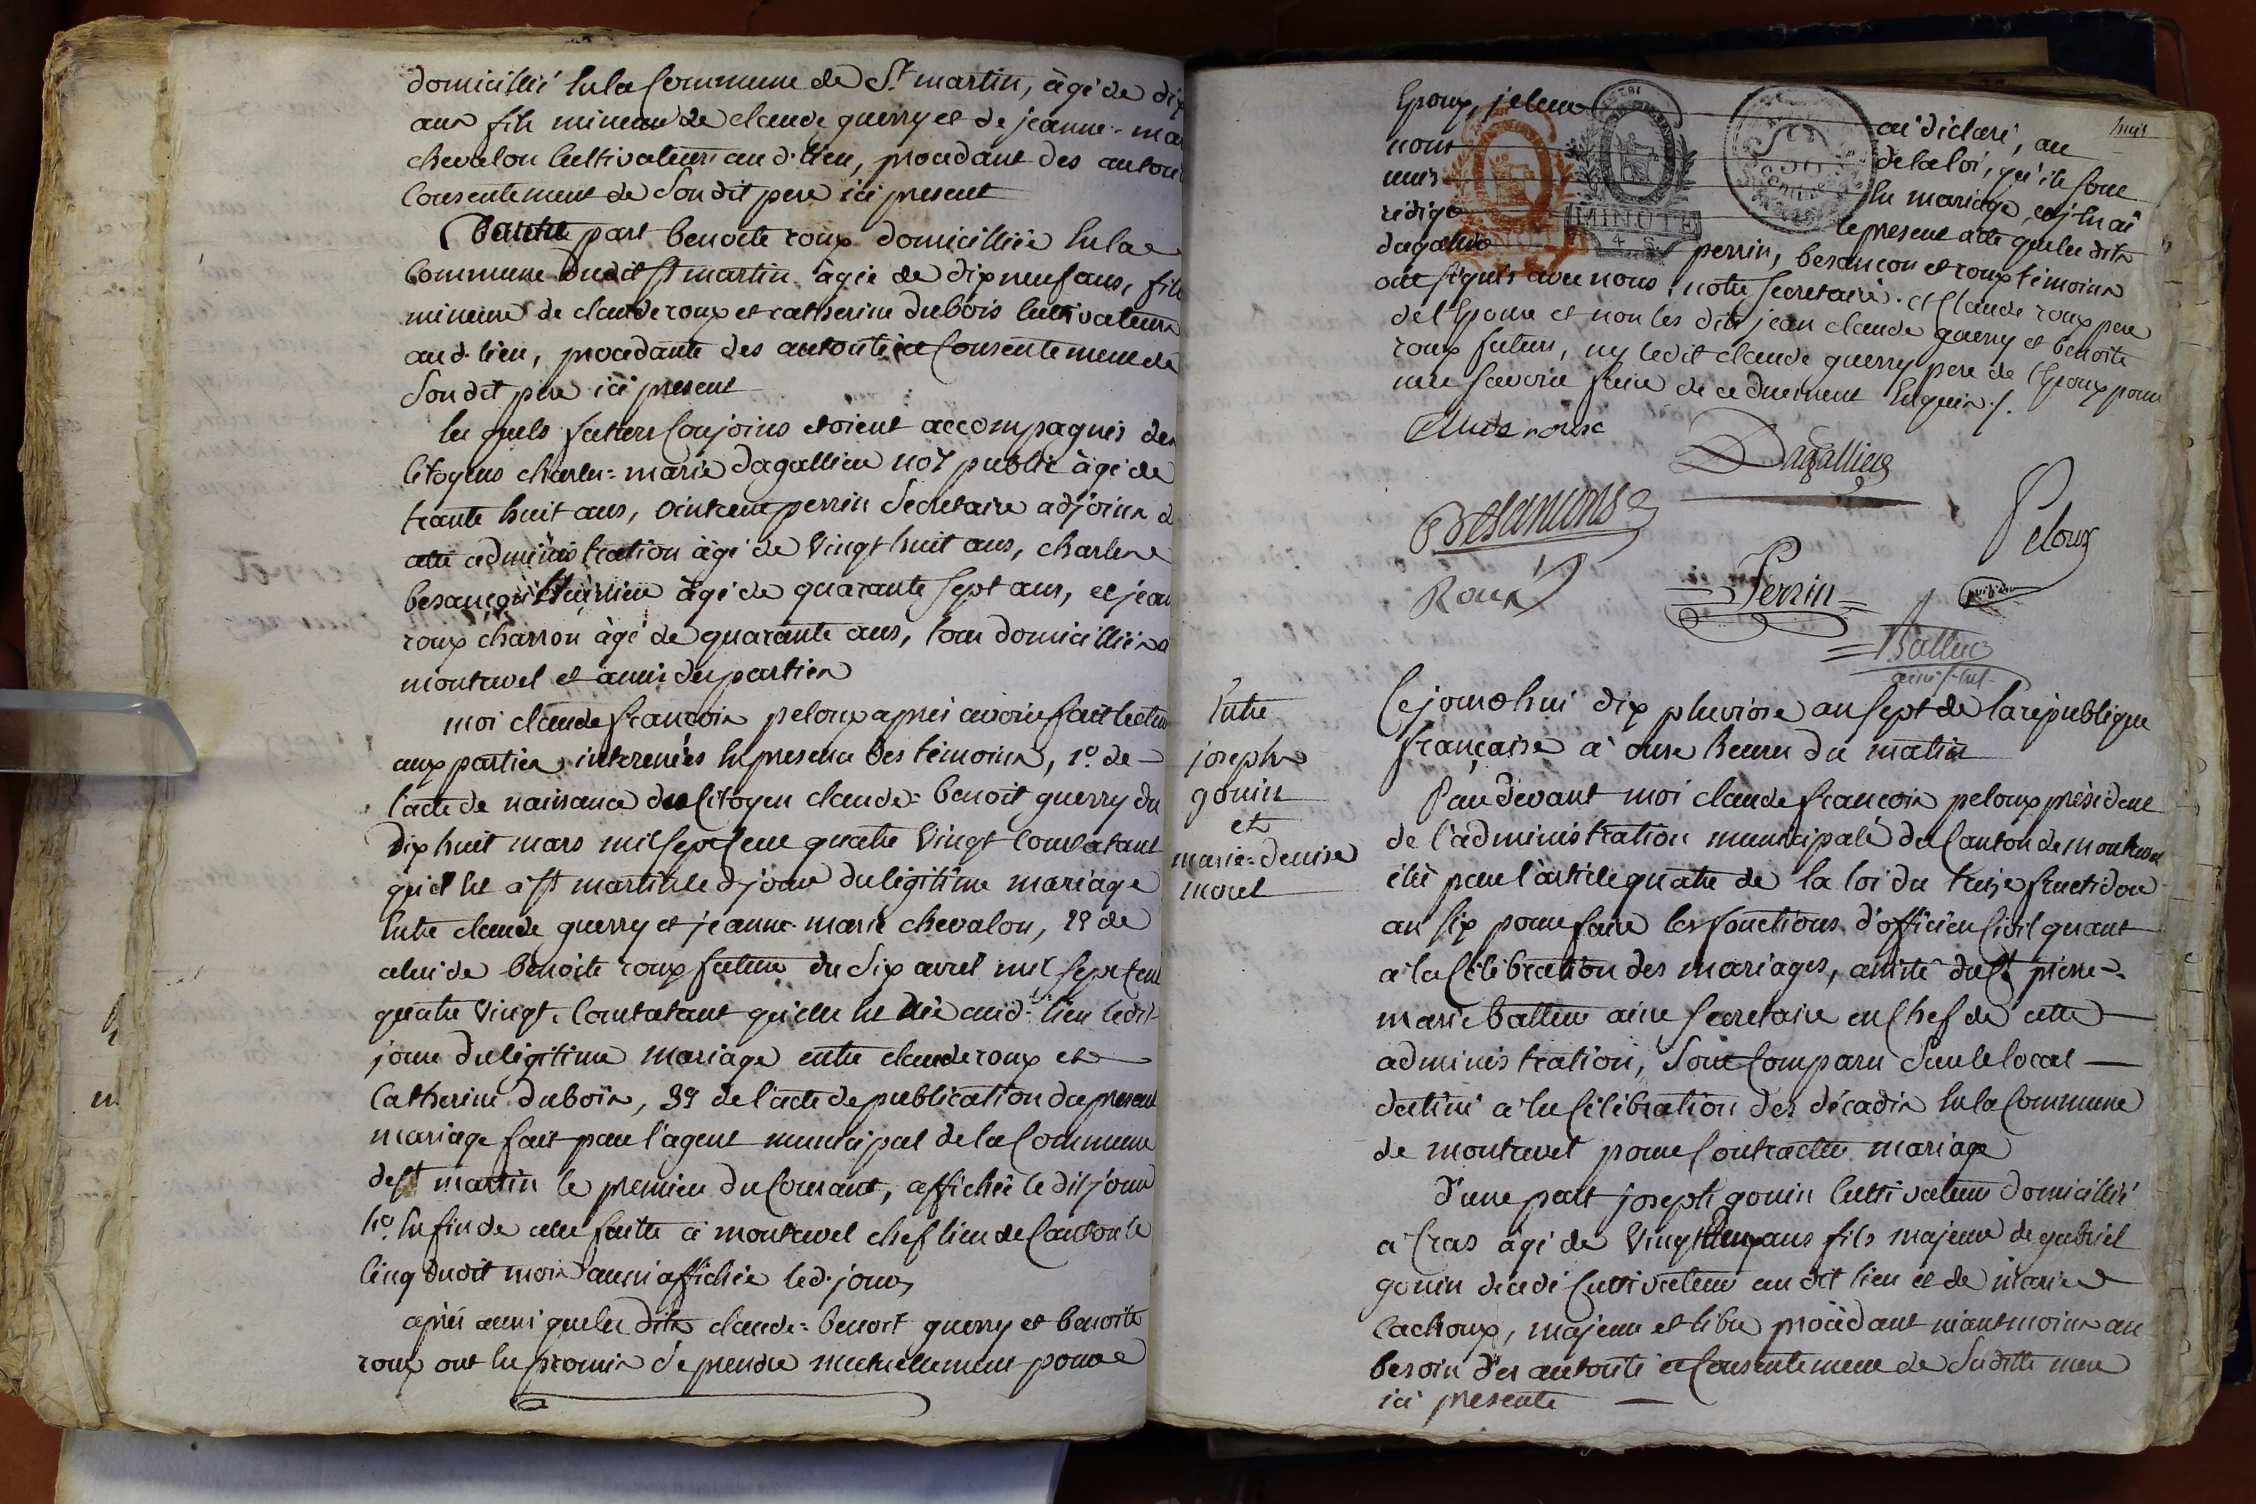 domicillié en la Commune de St. martin, âgé de dix
ans fils mineur de claude guerry et de jeanne = ma
chevalon Cultivateurs aud. lieu, procédant des autori
Consentement de Son dit pere ici present
D'autre part benoite roux domicilliée en la
Commune dudit st martin âgée de dix neuf ans, fille
mineure de claude roux et catherine dubois Cultivateurs
aud. lieu, procedante des autorité et Consentement de
Son dit père ici present
les quels futurs Conjoins etoient accompagnés des
Citoyens charles = marie dagallier not public âgé de
trante huit ans, perrin Secretaire adjoin a
cette administration âgé de Vingt huit ans, charles
besançon âgé de quarante Sept ans, et jean
roux charron âgé de quarante ans, tous domicilliés a
montrevel et amis des parties
moi claude francois peloux après avoir fait lecture
aux parties interessées En presence des témoins, 1o. de
l'acte de naissance du Citoyen claude = benoit guerry du
dix huit mars mil Sept Cent quatre Vingt Constatant
qu'il est né a st martin le d. jour du légitime mariage
Entre claude guerry et jeanne marie chevalon, 2o de
celui de benoite roux future du Six avril mil Sept Cent
quatre Vingt. Constatant qu'elle est née aud. lieu ledit
jour du légitime mariage entre claude roux et
Catherine dubois, 3o de l'acte de publication du present
mariage fait par l'agent municipal de la Commune
de st martin le premier du Courant, affichée le dit jour
4o. Enfin de celle faitte a montrevel chef lieu de Canton le
Cinq dudit mois aussi affichée led. jour,
après aussi que les dits claude = benoit guerry et benoite
roux ont eu promis de prendre mutuellement pour
Epoux, je leur ai déclaré, au
nom de la loi, qu'ils sont
unis En mariage, et j'en ai
rédigé le present acte que les dits
dagallier perrin, besançon et roux témoins
ont signés avec nous, notre Secretaire. et Claude roux pere
de l'Epouse et non les dits jean claude guerry et benoite
roux futurs, ny ledit claude guerry pere de l'Epoux pour
ne Savoir faire de ce duement Enquis ./.
Claude roux
Dagallier
Besancons
Peloux
Roux
Perrin
Balleur
Entre
joseph
gonin
et
marie = denise
morel
Cejourdhui dix pluviose an Sept de la république
française a onze heures du matin
Par devant moi claude francois peloux président
de l'administration municipale du Canton de montrevel
élû par l'article quatre de la loi du treize fructidor
an Six pour faire les fonctions d'officier Civil quant
a la Célébration des mariages, assisté du Ct pierre =
marie balleur ainé Secretaire en Chef de cette
administration, Sont Comparu Sur le local
destiné a la Célébration des décadis En la Commune
de montrevel pour Contracter mariage
D'une part joseph gonin Cultivateur domicillié
a Cras âgé de Vingt ans fils majeur de gabriel
gonin décédé Cultivateur au dit lieu et de marie
Cachoux, majeur et libre procédant néantmoins au
besoin des autorité et Consentement de Suditte mere
ici presente